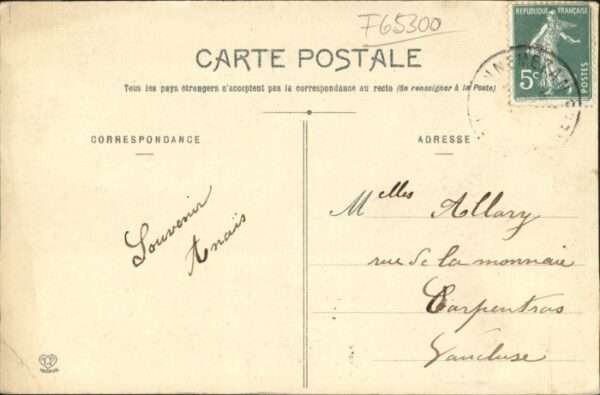 F65300
RÉPUBLIQUE FRANÇAISE
5c
POSTES
CARTE POSTALE
Tous les pays étrangers n'acceptent pas la correspondance au recto (Se renseigner à la Poste)
CORRESPONDANCE
ADRESSE
Souvenir
Anaïs
Melles Allary
rue de la monnaie
Carpentras
Vaucluse